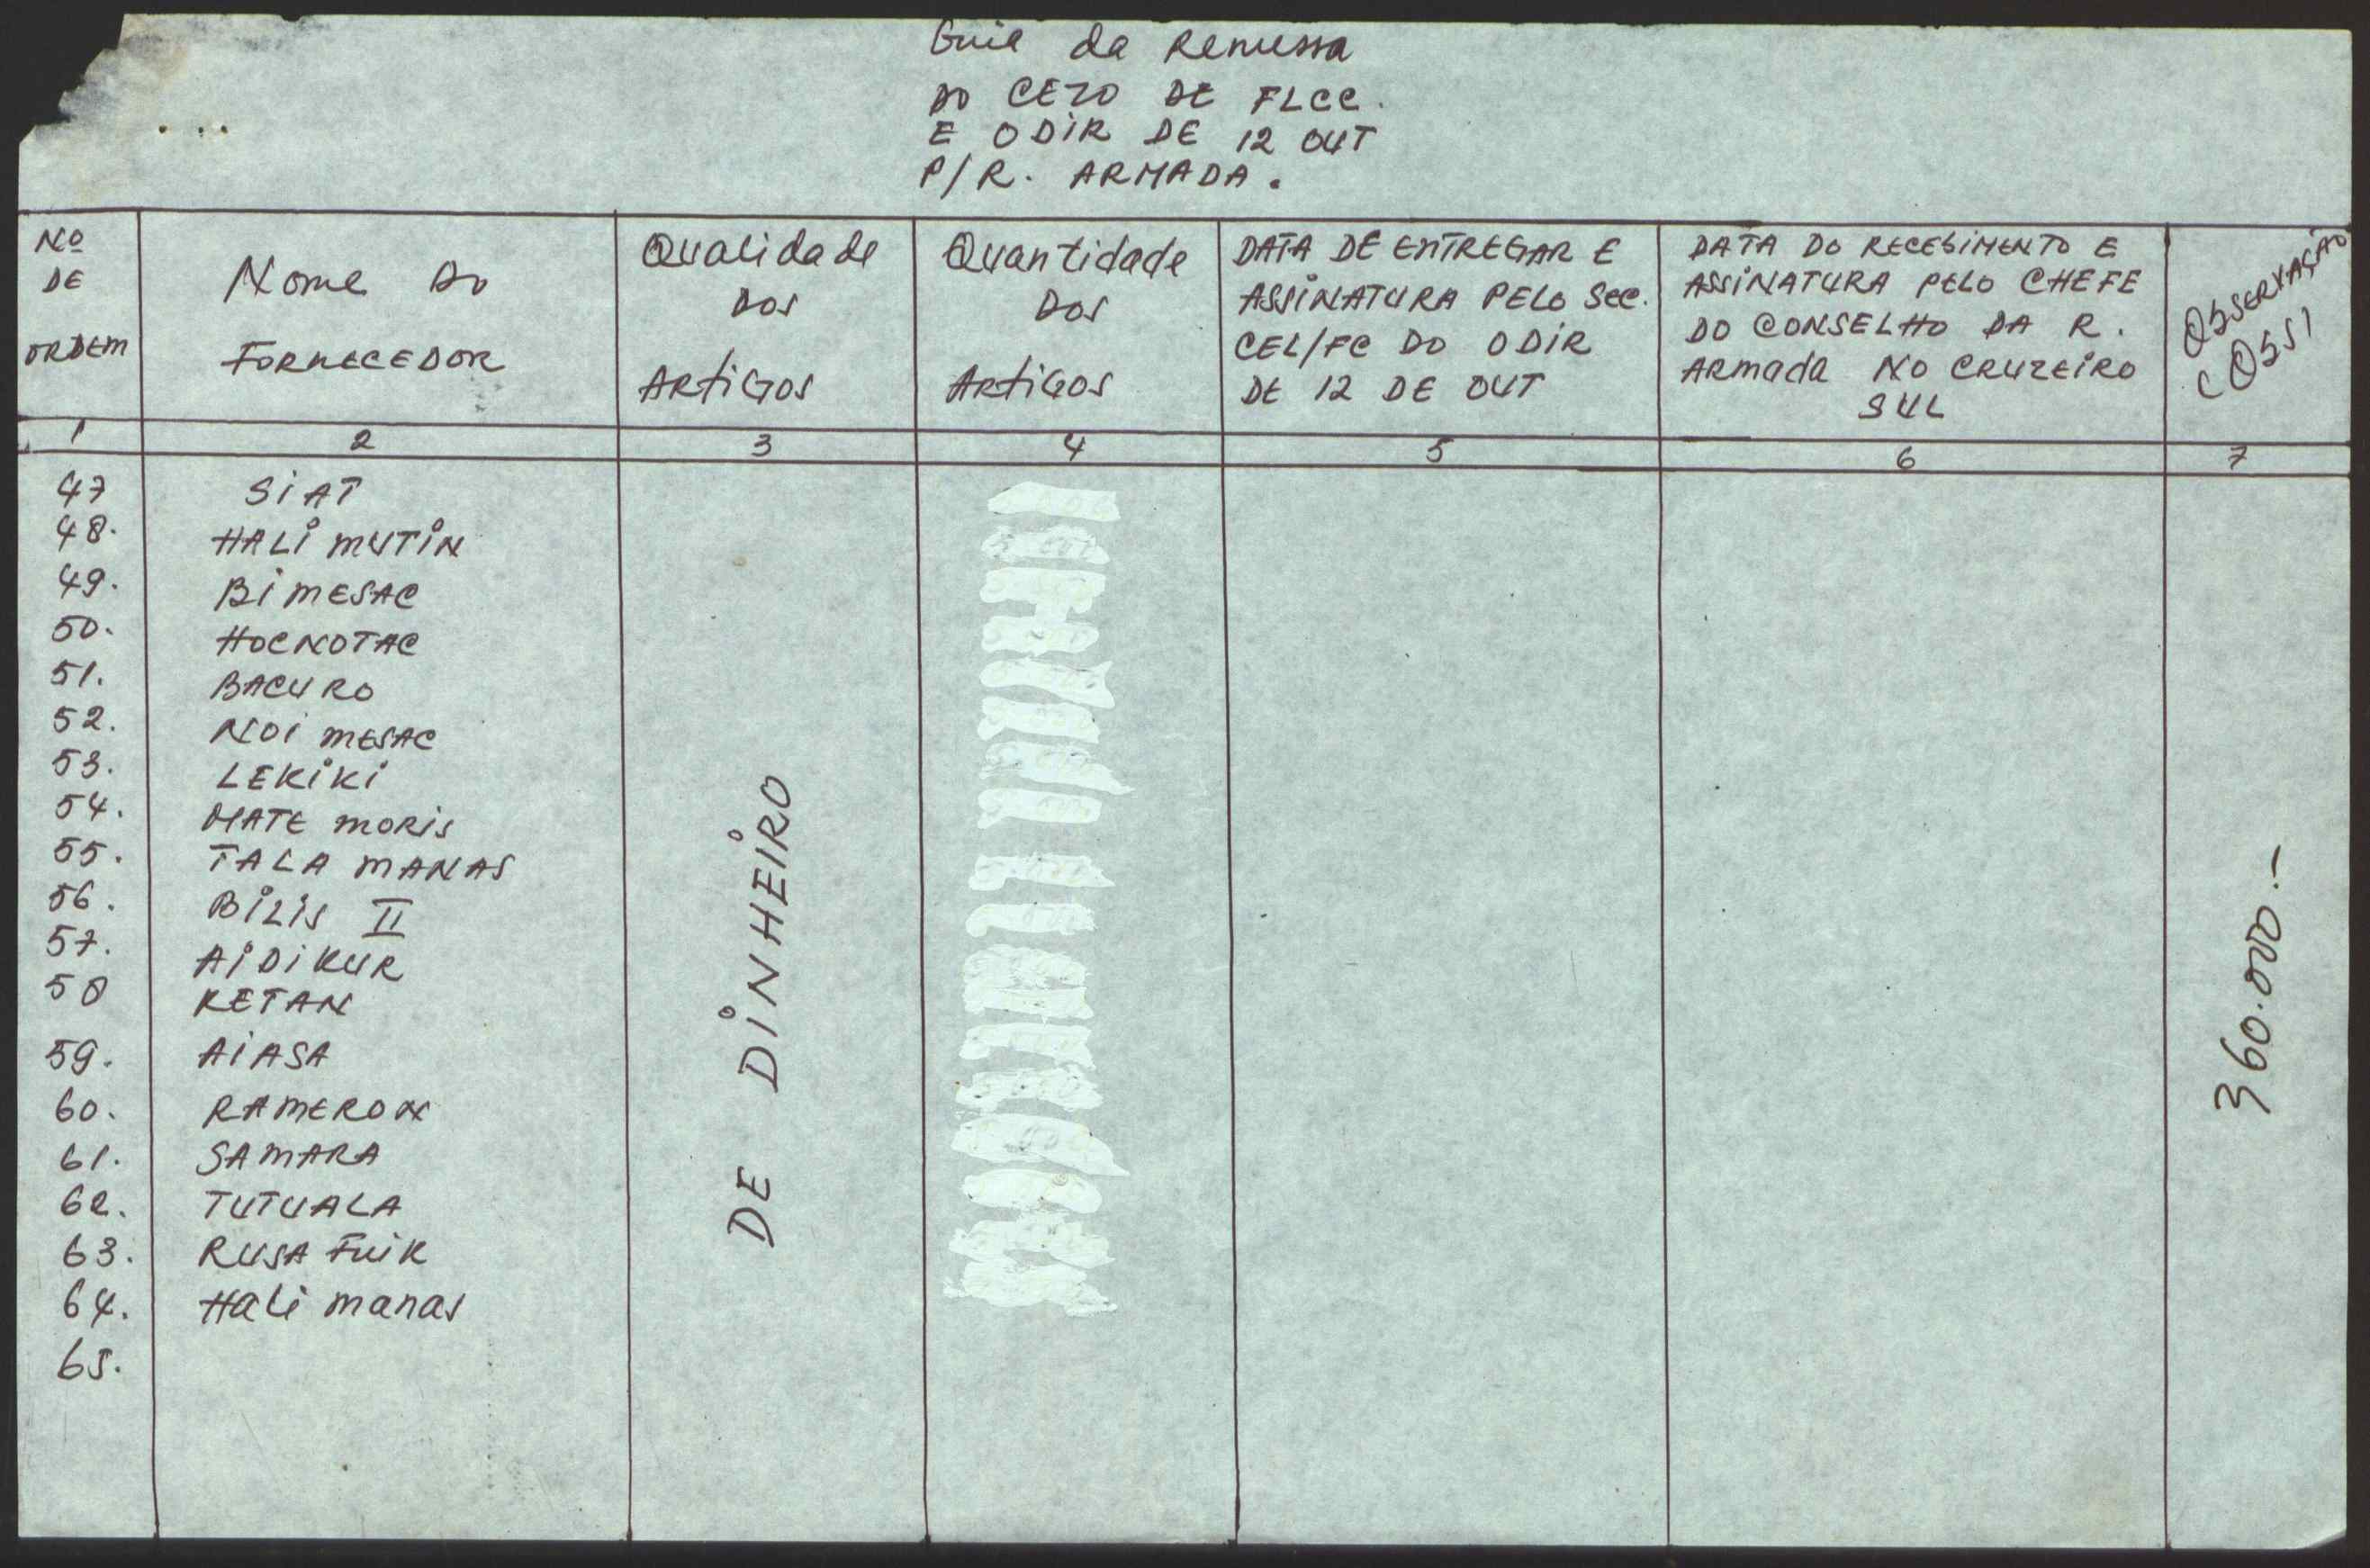 Guia da Remessa
DO CEZO DE FLCC.
E ODIR DE 12 OUT
P/R. ARMADA.
Nº DE ORDEM
Nome Do FORNECEDOR
Qualidade DOS ARtiGOS
Quantidade DOS ARtiGOS
DATA DE ENTREGAR E ASSINATURA PELO SEC. CEL/FC DO ODIR DE 12 DE OUT
DATA DO RECEBIMENTO E ASSINATURA PELO CHEFE DO CONSELHO DA R. ARmada NO CRUZEIRO SUL
OBSERVAÇÃO
1 2 3 4 5 6 7
47 SIAT
48. HALI MUTIN
49. BI MESAC
50. HOCNOTAC
51. BACURO
52. NOI MESAC
53. LEKIKI
54. MATE MORIS
55. TALA MANAS
56. BILIS II
57. AIDIKUR
58 KETAN
59. AIASA
60. RAMERON
61. SAMARA
62. TUTUALA
63. RUSA FUIK
64. Hali manas
65.
DE DINHEIRO
360.000.-